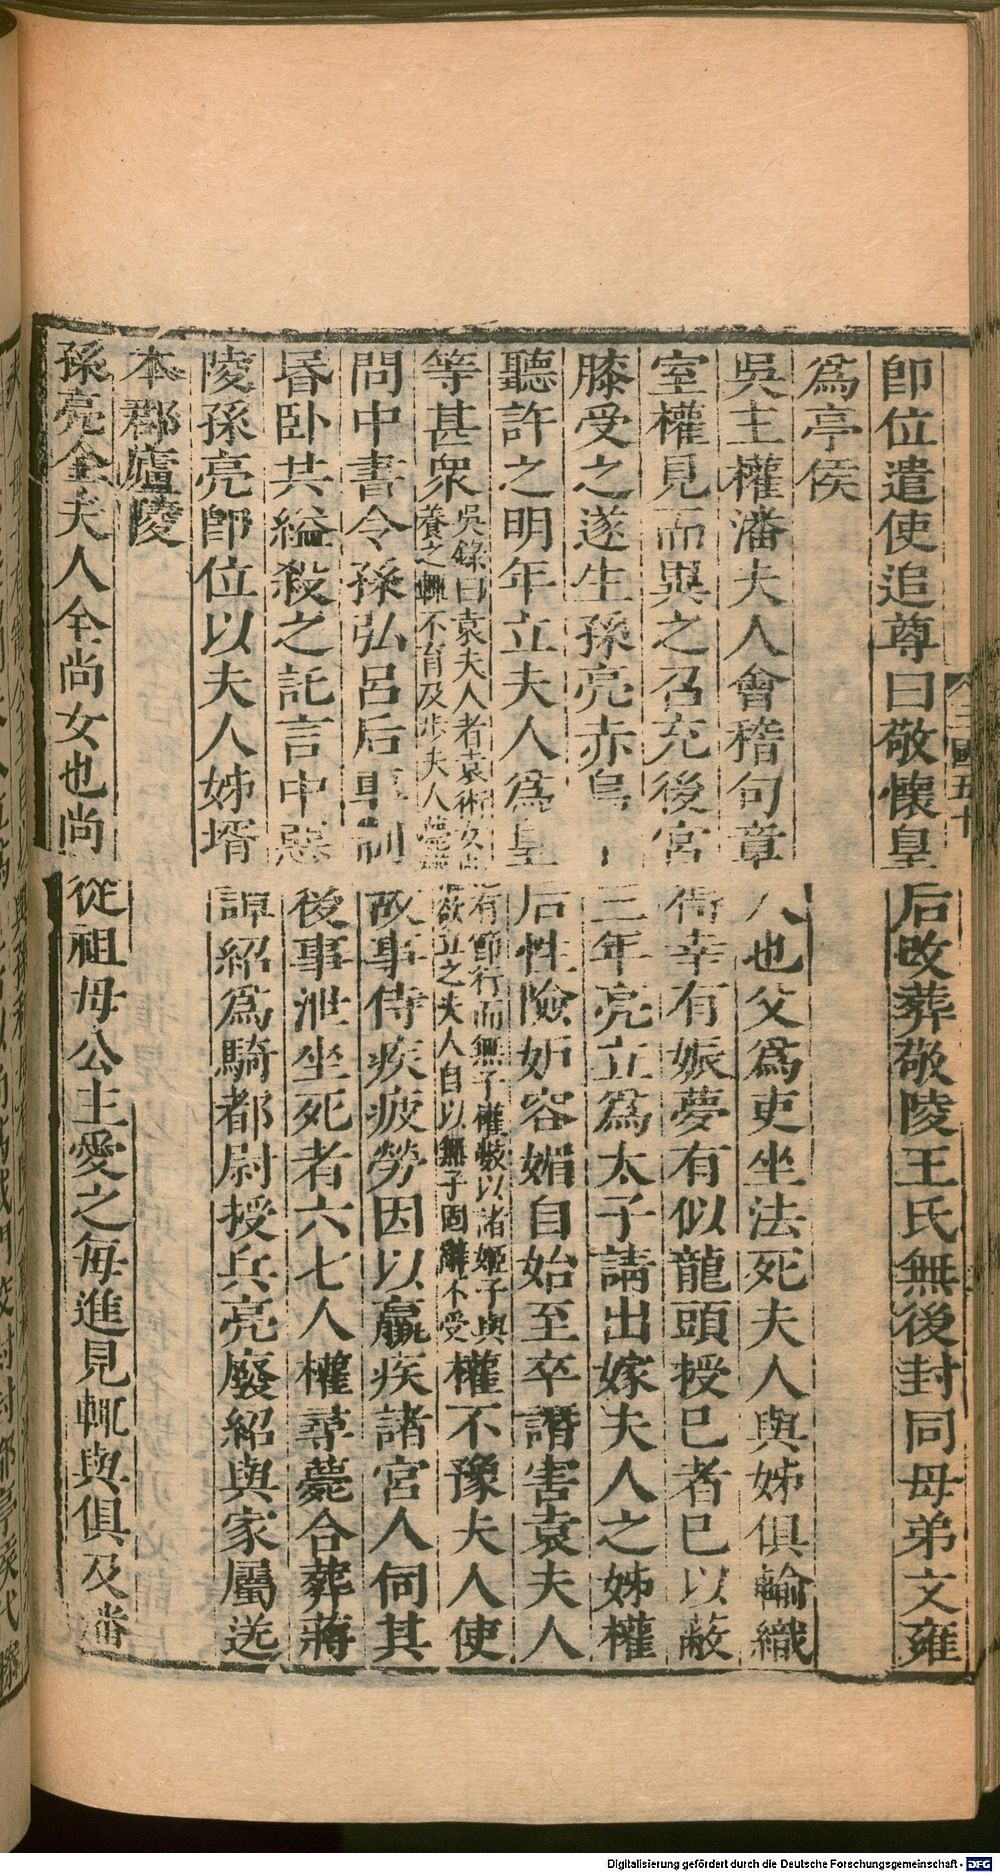 即位遣使追尊曰敬懷皇后改葬敬陵王氏無後封同母弟文雍
爲亭侯
吳主權潘夫人會稽句章人也父爲吏坐法死夫人與姊俱輸織
室權見而異之召充後宮得幸有娠夢有似龍頭授己者己以蔽
膝受之遂生孫亮赤烏十三年亮立爲太子請出嫁夫人之姊權
聽許之明年立夫人爲皇后性險妒容媚自始至卒譖害袁夫人
等甚衆
吳錄曰袁夫人者袁術女也有節行而無子權數以諸姬子與
養之輒不育及步夫人薨權欲立之夫人自以無子固辭不受
權不豫夫人使
問中書令孫弘呂后專制故事侍疾疲勞因以羸疾諸宮人伺其
昬卧共縊殺之託言中惡後事泄坐死者六七人權尋薨合葬蔣
陵孫亮卽位以夫人姊壻譚紹爲騎都尉授兵亮廢紹與家屬送
本郡廬陵
孫亮全夫人全尚女也尚從祖母公主愛之每進見輒與俱及潘
三國五十
Digitalisierung gefördert durch die Deutsche Forschungsgemeinschaft - DFG